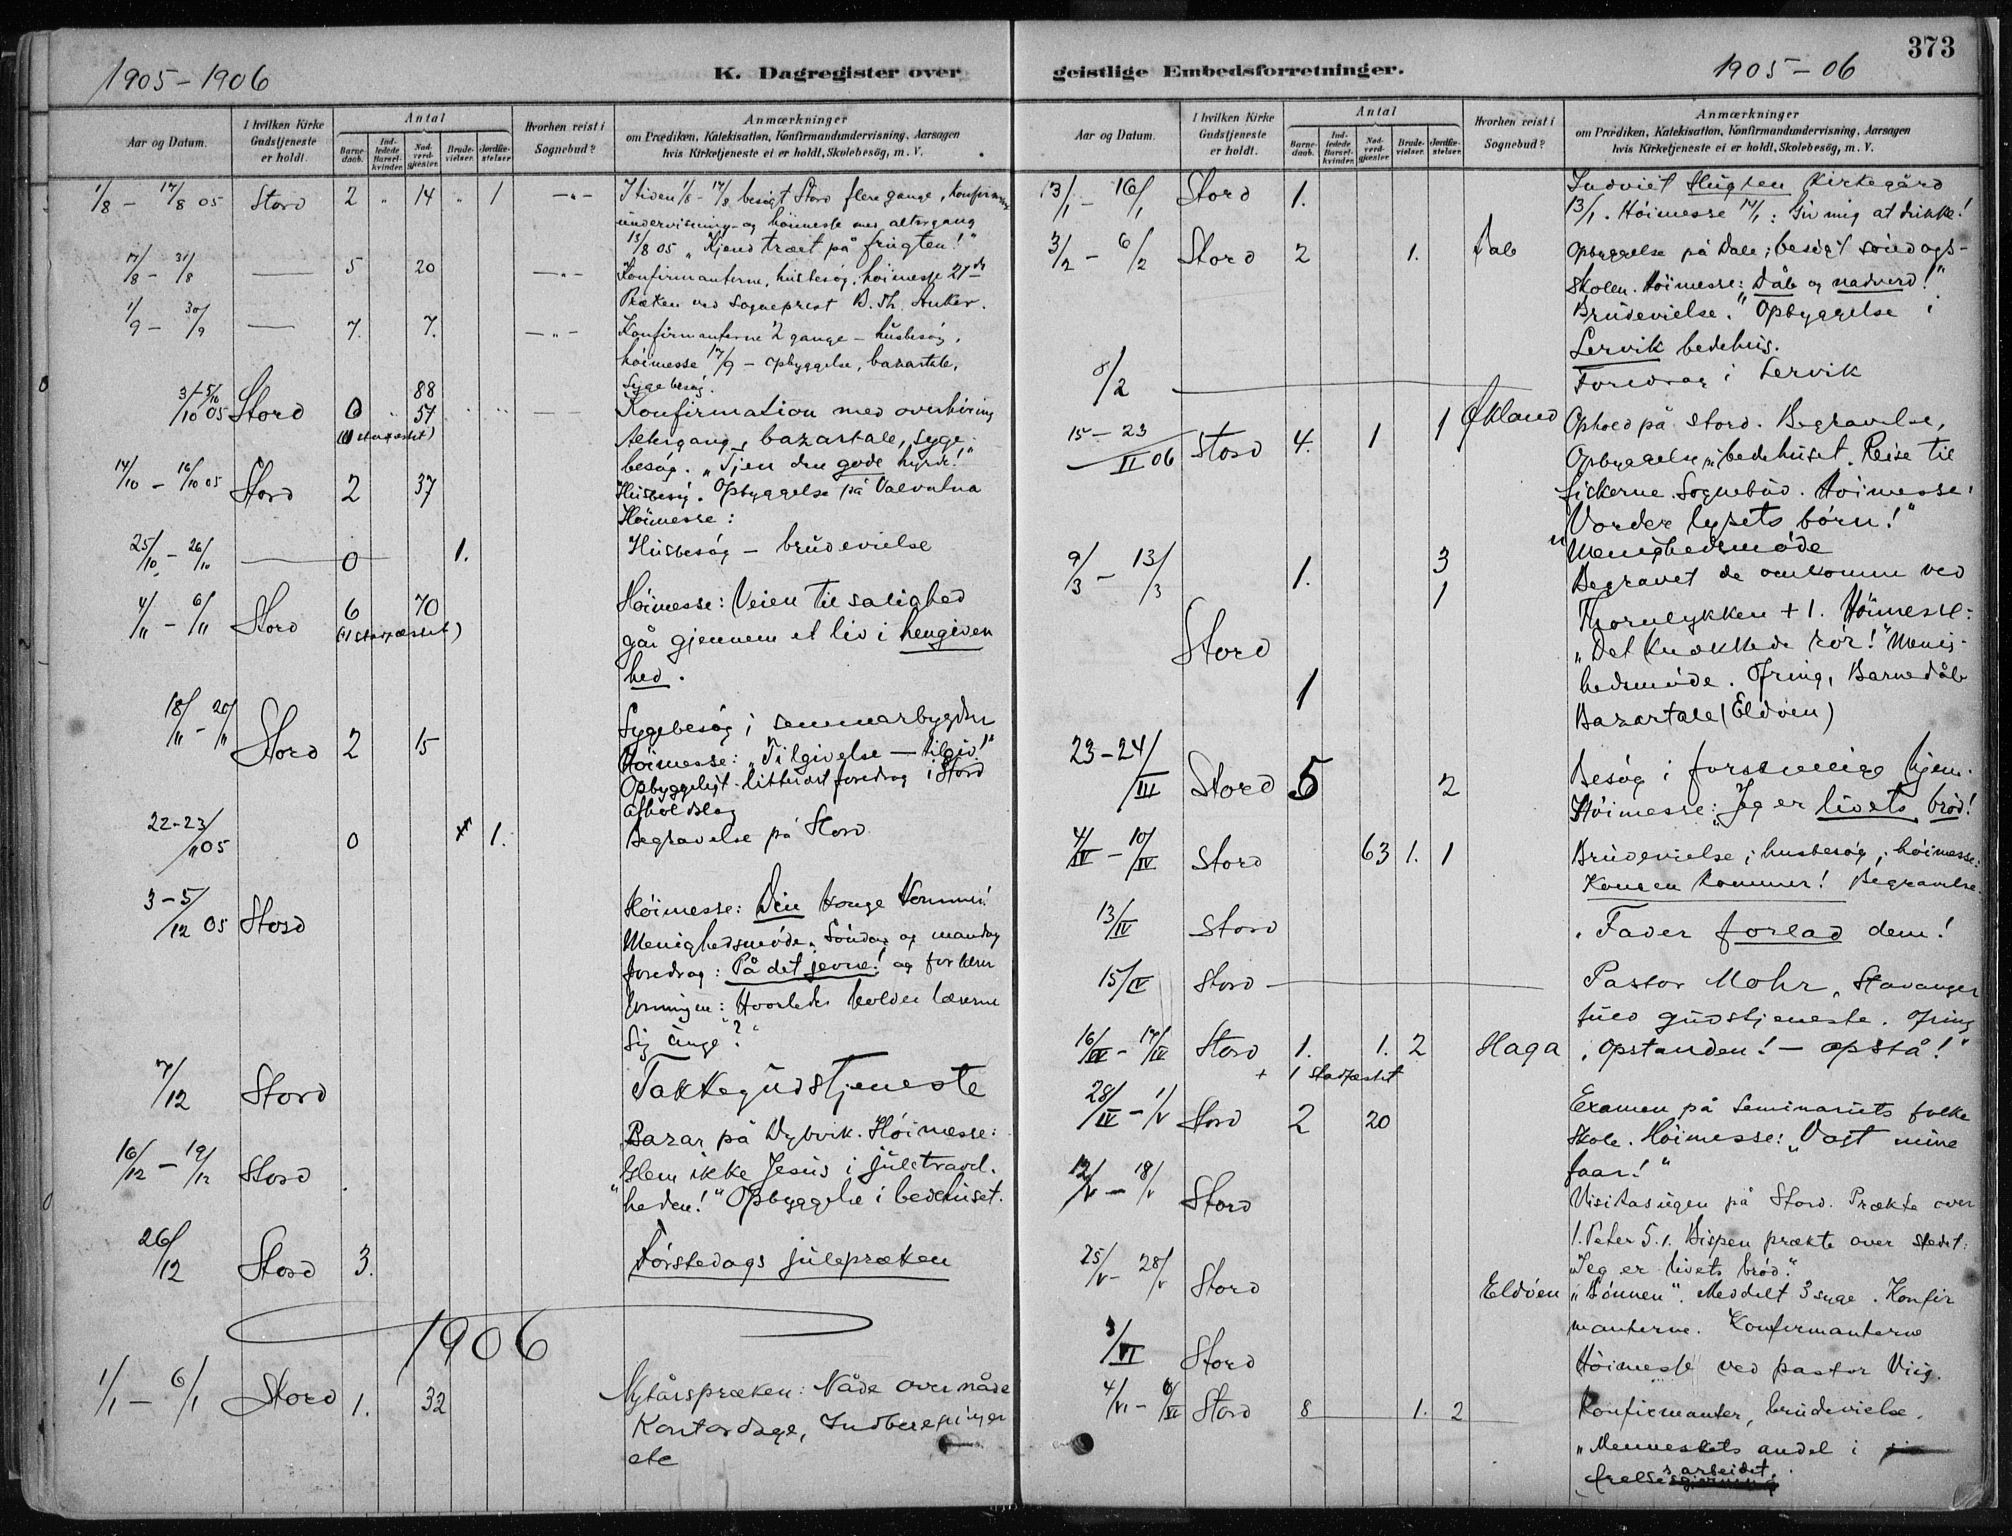 1905-1906
K. Dagregister over
Aar og Datum.
I hvilken Kirke Gudstjeneste er holdt.
Antal
Barne-daab.
Ind-ledede Barsel-kvinder.
Nad-verd-gjester.
Brude-vielser.
Jordfæ-stelser.
Hvorhen reist i Sognebud?
Anmærkninger
om Prædiken, Katekisation, Konfirmandundervisning, Aarsagen
hvis Kirketjeneste ei er holdt, Skolebesøg, m. V.
1/8 - 17/8 05 Stord 2 " 14 " 1 - " - I tiden 1/8 - 17/8 besøgt Stord flere gange, konfirmant
undervisning og høimesse med altergang
13/8 05 "Kjend træet på frugten!"
17/8 - 31/8 — 5 20 - " - Konfirmanterne, husbesøg, høimesse 27de
Præken ved sogneprest B. Th. Anker.
1/9 - 30/9 — 7. 7. - " - Konfirmanterne 2 gange - husbesøg,
høimesse 17/9 - opbyggelse, bazartale,
sygebesøg.
3/10 - 5/10 05 Stord 0 " 88 57 " " — Konfirmation med overhøring
Altergang, bazartale, syge-
besøg. "Tjen den gode hyrde!"
14/10 - 16/10 05 Stord 2 37 Husbesøg. Opbyggelse på Valvatna
Høimesse:
25/10 - 26/10 — 0 1. Husbesøg - brudevielse
4/11 - 6/11 Stord 6 70 Høimesse: Veien til salighed
(1 stadfæstet) går gjennem et liv i hengiven
hed.
18/11 - 20/11 Stord 2 15 Sygebesøg i
Høimesse: "Tilgivelse - tilgiv!"
Opbyggeligt-litterært foredrag i Stord
afholdslag
22-23/11 05 0 1. Begravelse på Stord
3-5/12 05 Stord Høimesse: Din konge kommer!
Menighedsmøde. Søndag og mandag
foredrag: På det jevne! og for lærer
foreningen: Hvorledes holder lærerne
sig unge?"
7/12 Stord Takkegudstjeneste
16/12 - 19/12 Stord . Bazar på Dybvik. Høimesse:
"Glem ikke Jesus i juletravel-
heden!" Opbyggelse i bedehuset.
26/12 Stord 3. Førstedags julepræken
1906
1/1 - 6/1 Stord 1. 32 Nytårspræken: Nåde over nåde
Kontordage, Indberetninger
etc
373
geistlige Embedsforretninger.
1905-06
Aar og Datum.
I hvilken Kirke Gudstjeneste er holdt.
Antal
Barne-daab.
Ind-ledede Barsel-kvinder.
Nad-verd-gjester.
Brude-vielser.
Jordfæ-stelser.
Hvorhen reist i Sognebud?
Anmærkninger
om Prædiken, Katekisation, Konfirmandundervisning, Aarsagen
hvis Kirketjeneste ei er holdt, Skolebesøg, m. V.
13/1 - 16/1 Stord 1. Indviet Hugten kirkegård
13/1. Høimesse 14/1: Giv mig at drikke!
3/2 - 6/2 Stord 2 1. Dale Opbyggelse på Dale; besøgt søndags-
skolen. Høimesse: Dåb og nadverd!"
Brudevielse. Opbyggelse i
Lervik bedehus.
8/2 — Foredrag i Lervik
15-23/II 06 Stord 4. 1 1 Økland Ophold på Stord. Begravelse,
Opbyggelse i bedehuset. Reise til
fiskerne. Sognebud. Høimesse:
Vorder lysets børn!"
Menighedsmøde
9/3 - 13/3 Stord 1. 3 Begravet de omkomne ved
1 Thornlykken + 1. Høimesse:
"Det knækkede rør!" Menig-
hedsmøde. Ofring, Barnedåb
1 Bazartale (Eldøen)
23-24/III Stord 5 2 Besøg i forskjellige hjem.
Høimesse: "Jeg er livets brød!
4/IV - 10/IV Stord 63 1. 1 Brudevielse; husbesøg; høimesse:
Kongen kommer! Begravelse.
13/IV Stord "Fader forlad dem!
15/IV Stord — Pastor Mohr, Stavanger
gudstjeneste. Ofring
16/IV - 17/IV Stord 1. 1. 2 Haga "Opstanden! - opstå!"
+ 1 stadfæstet
28/IV - 1/V Stord 2 20 Examen på Seminariets folke
skole. Høimesse: "Vogt mine
faar!"
12/V - 18/V Stord Visitasugen på Stord. Prækte over
1. Peter 5.1. Bispen prækte over stedet:
"Jeg er livets brød."
25/V - 28/V Stord Eldøen "Bønnen". Meddelt 3 syge. Konfir
manterne. Konfirmanterne
3/VI Stord Høimesse ved pastor Vig.
4/VI - 6/VI Stord 8 — 1. 2 — Konfirmanter, brudevielse.
"Menneskets andel i
frelsesarbeidet.